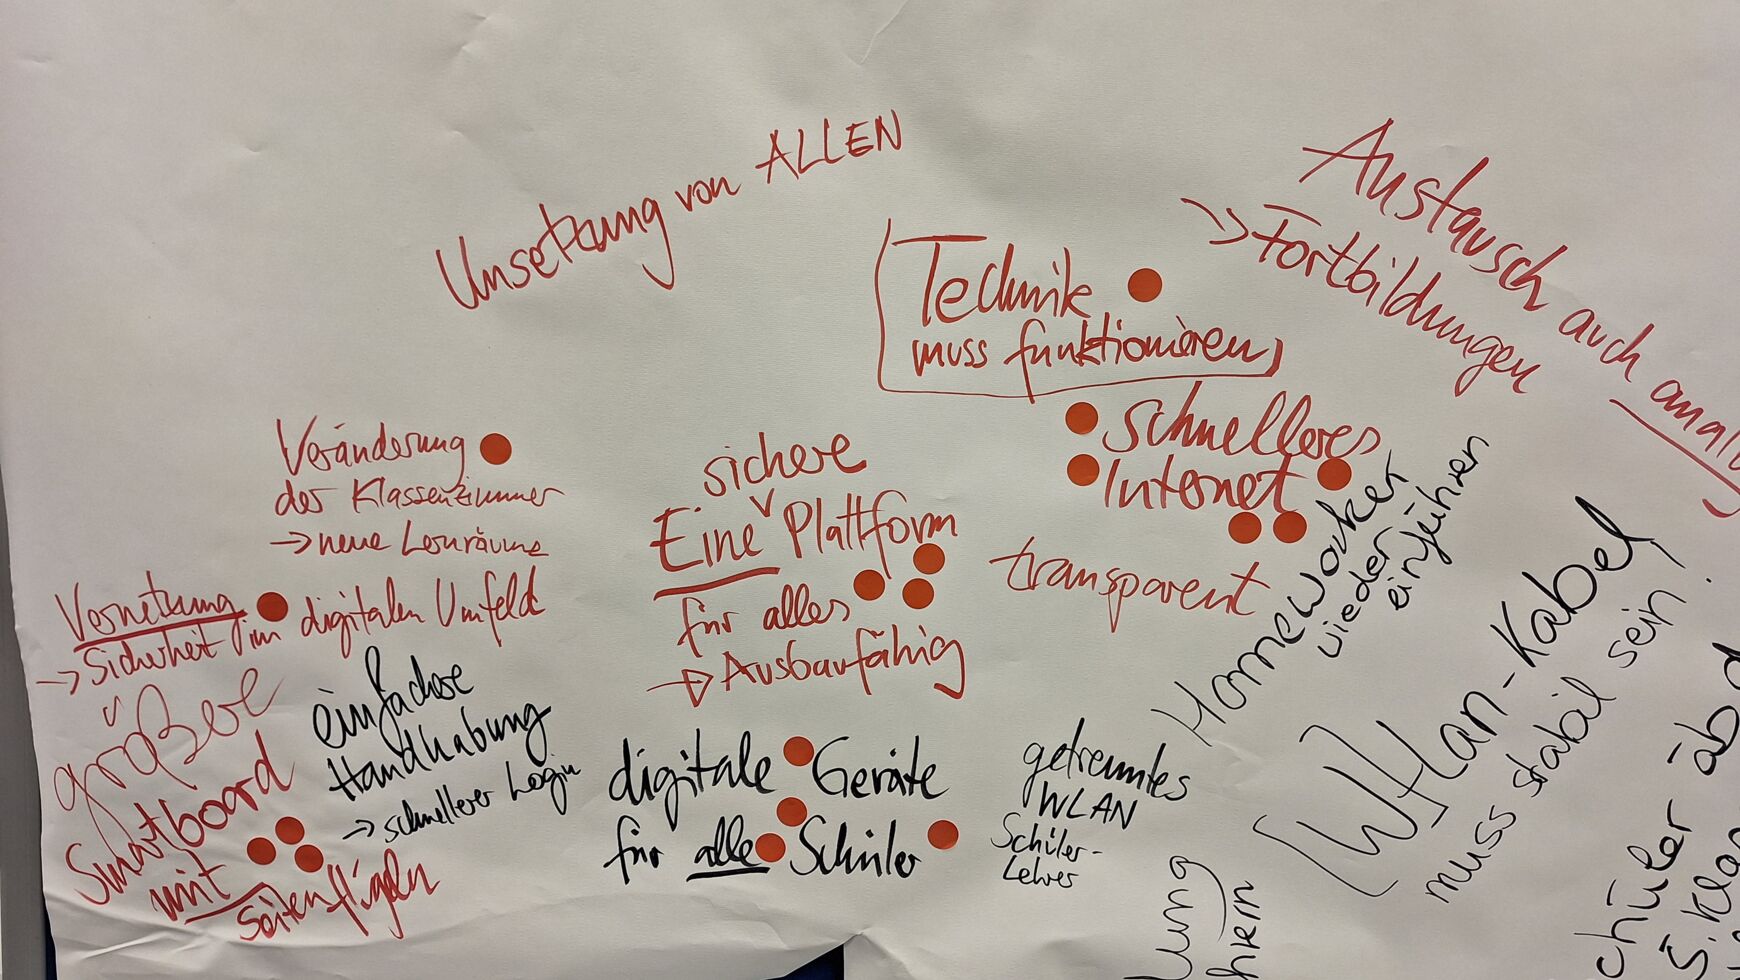 Umsetzung von ALLEN
Austausch auch
→ Fortbildungen
Technik
muss funktionieren
schnelleres
Internet
transparent
Veränderung
der Klassenzimmer
→ neue Lernräume
sichere
Eine Plattform
für alles
→ Ausbaufähig
Vernetzung
→ Sicherheit im digitalen Umfeld
größere
Smartboard
mit
Seitenflügeln
einfachere
Handhabung
→ schnellerer Login
digitale Geräte
für alle Schüler
getrenntes
WLAN
Schüler-
Lehrer
Homeworker
wieder
einführen
muss stabil sein!